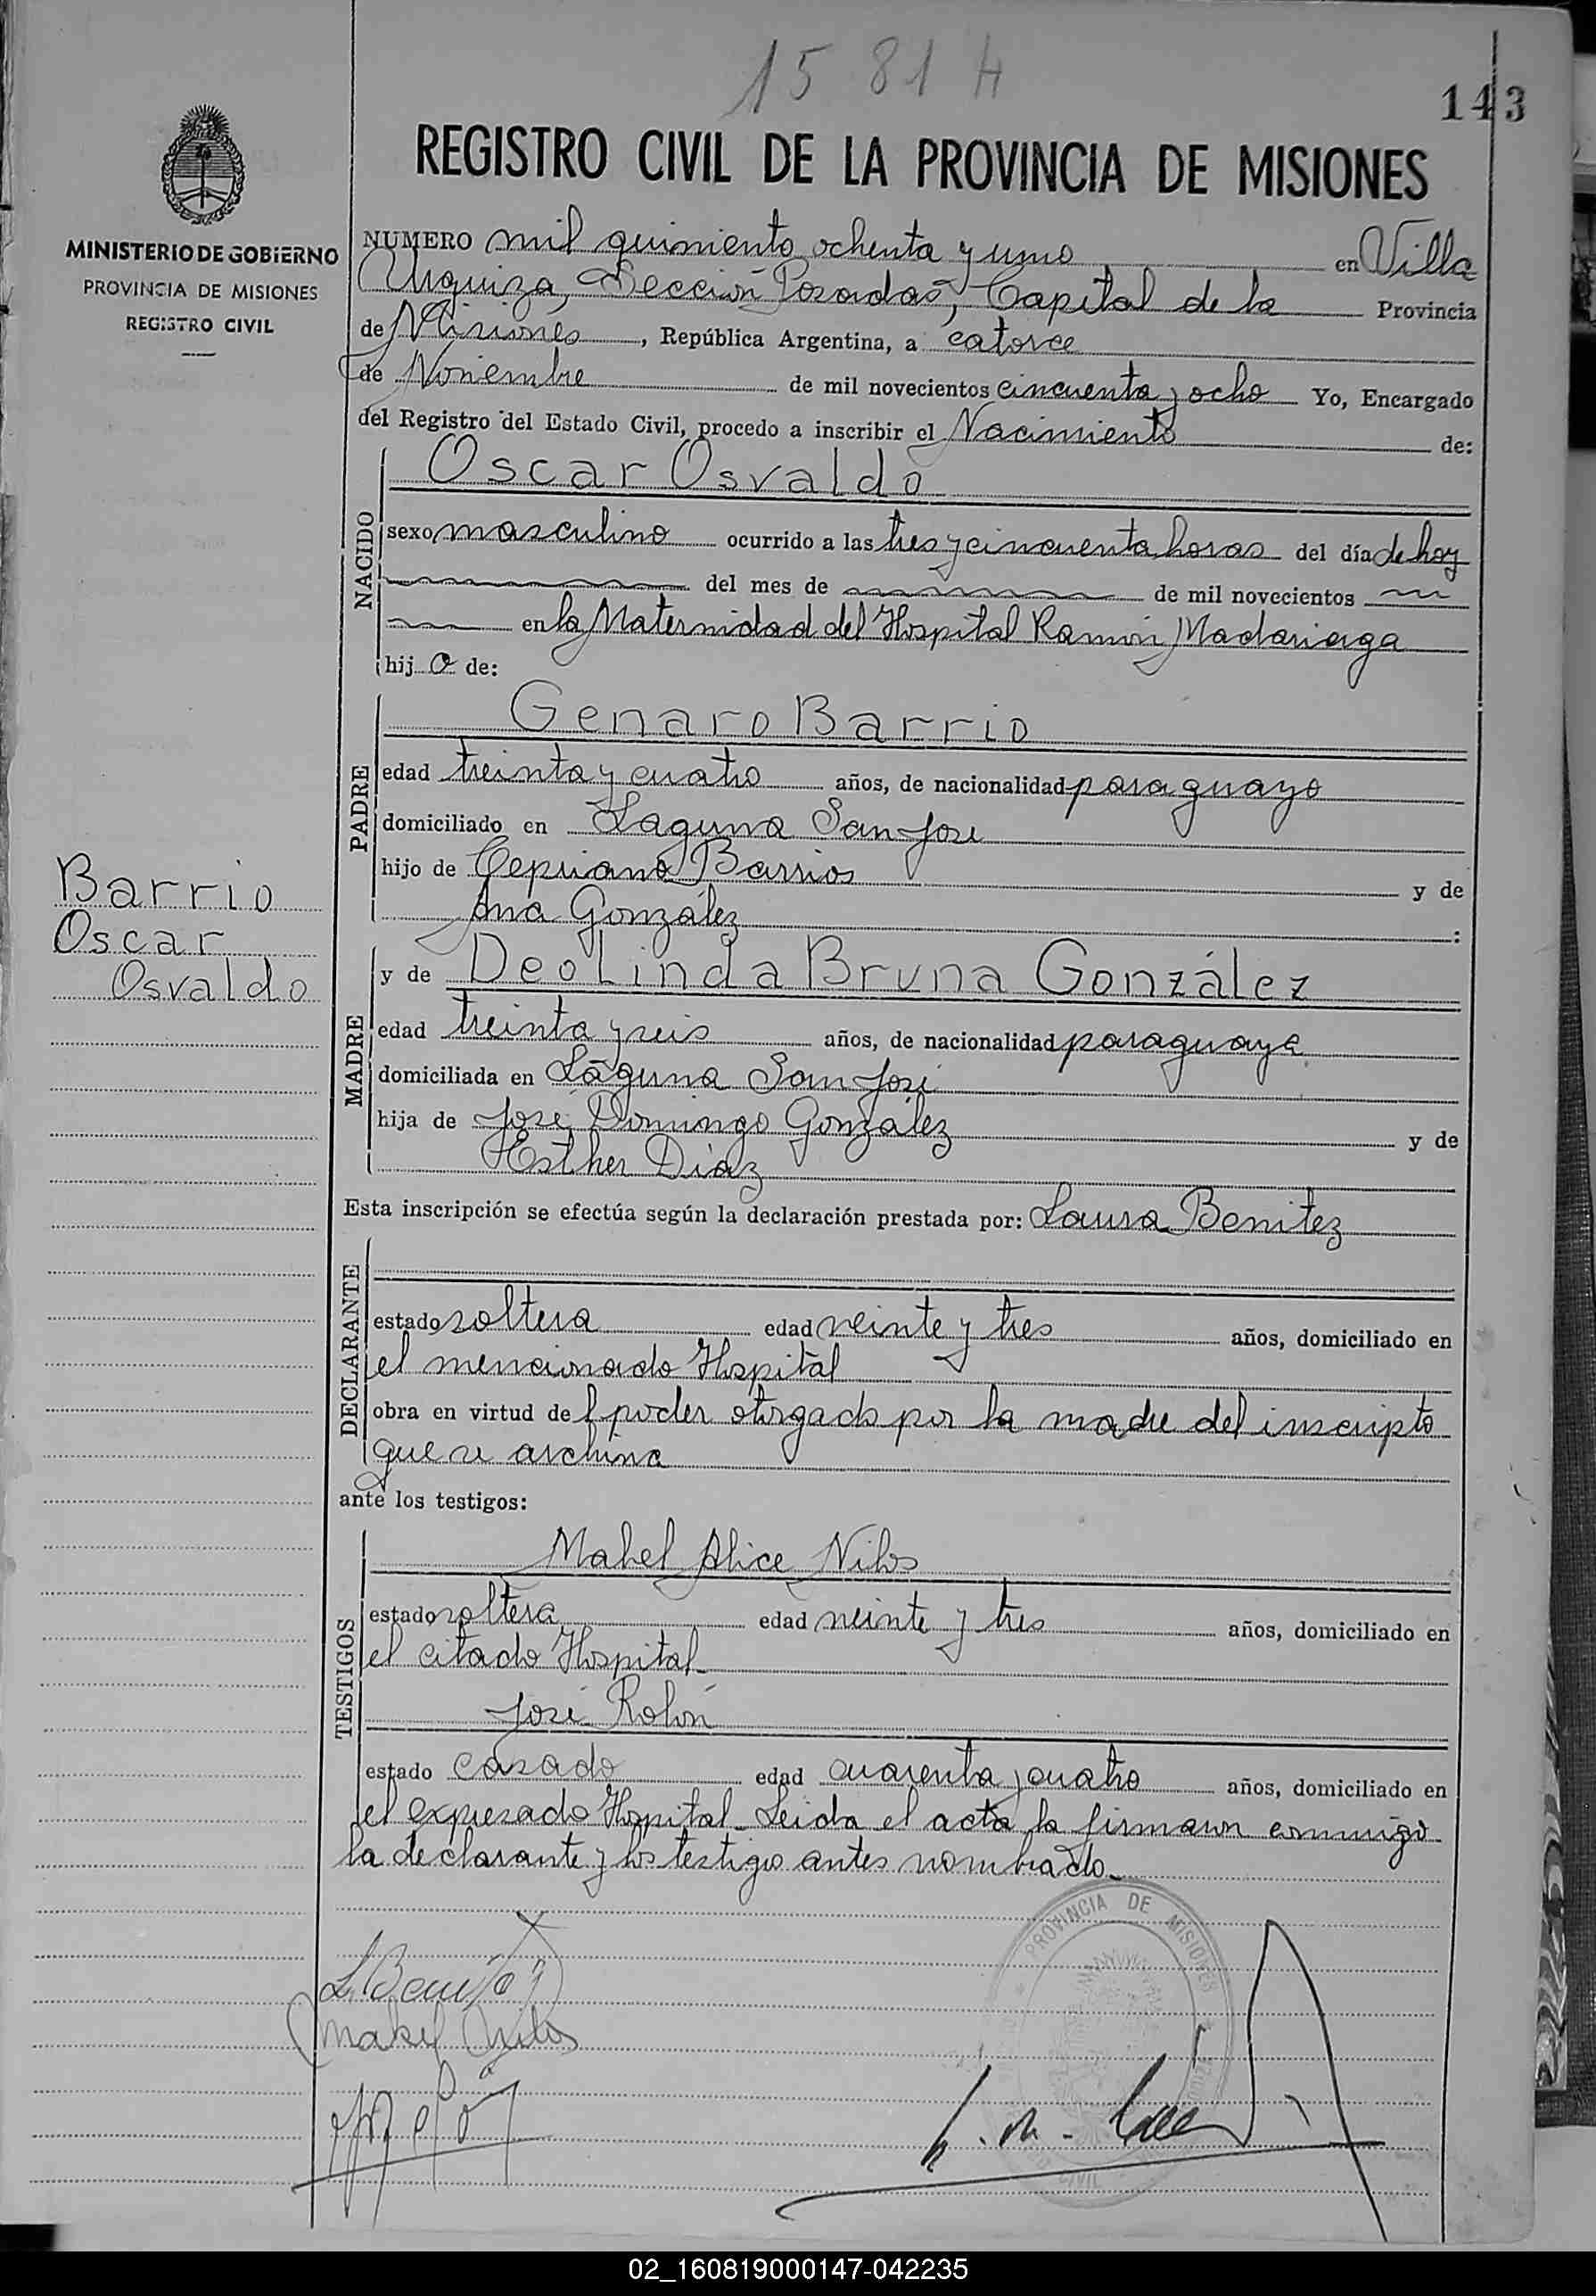 15 81 H
143
REGISTRO CIVIL DE LA PROVINCIA DE MISIONES
MINISTERIO DE GOBIERNO
PROVINCIA DE MISIONES
REGISTRO CIVIL
NUMERO mil quiniento ochenta y uno en Villa
Urquiza, Sección Posadas, Capital de la Provincia
de Misiones, República Argentina, a catorce
de Noviembre de mil novecientos cincuenta y ocho Yo, Encargado
del Registro del Estado Civil, procedo a inscribir el Nacimiento de:
NACIDO
Oscar Osvaldo
sexo masculino ocurrido a las tres y cincuenta horas del día de hoy
del mes de de mil novecientos
en la Maternidad del Hospital Ramón Madariaga
hij o de:
PADRE
Genaro Barrio
edad treinta y cuatro años, de nacionalidad paraguayo
domiciliado en Laguna San José
hijo de Cepriano Barrios y de
Ana González :
Barrio
Oscar
Osvaldo
MADRE
y de Deolinda Bruna González
edad treinta y seis años, de nacionalidad paraguaya
domiciliada en Laguna San José
hija de José Domingo González y de
Esther Diaz
Esta inscripción se efectúa según la declaración prestada por: Laura Benitez
DECLARANTE
estado soltera edad veinte y tres años, domiciliado en
el mencionado Hospital
obra en virtud del poder otorgado por la madre del inscripto
que se archiva
ante los testigos:
TESTIGOS
Mabel Alice Nilos
estado soltera edad veinte y tres años, domiciliado en
el citado Hospital
José Rolón
estado casado edad cuarenta y cuatro años, domiciliado en
el expresado Hospital - Leida el acta la firmaron conmigo
la declarante y los testigos antes nombrado.
PROVINCIA DE MISIONES
CIVIL
L. Benitez
Mabel Nilos
02_160819000147-042235